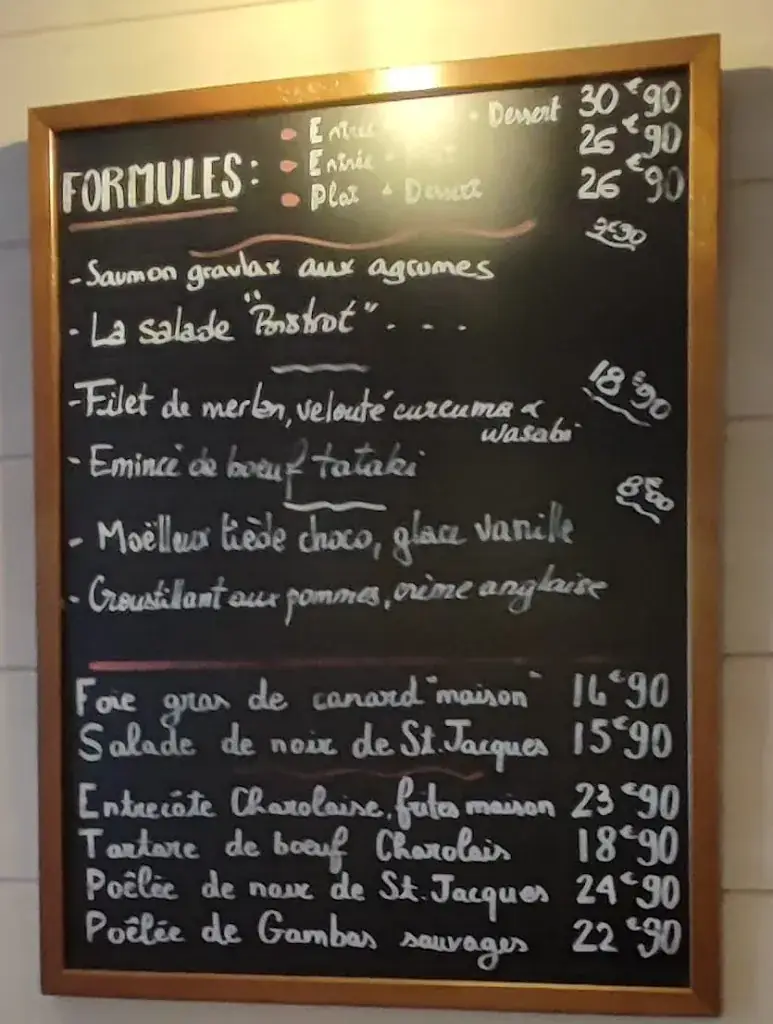 • Entrée + Dessert 30€90
FORMULES: • Entrée + Plat 26€90
• Plat + Dessert 26€90
9€90
- Saumon gravlax aux agrumes
- La salade "Bistrot" . . .
18€90
- Filet de merlan, velouté curcuma &
wasabi
- Emincé de boeuf tataki
8€90
- Moëlleux tiède choco, glace vanille
- Croustillant aux pommes, crème anglaise
Foie gras de canard "maison" 16€90
Salade de noix de St. Jacques 15€90
Entrecôte Charolaise, frites maison 23€90
Tartare de boeuf Charolais 18€90
Poêlée de noix de St. Jacques 24€90
Poêlée de Gambas sauvages 22€90